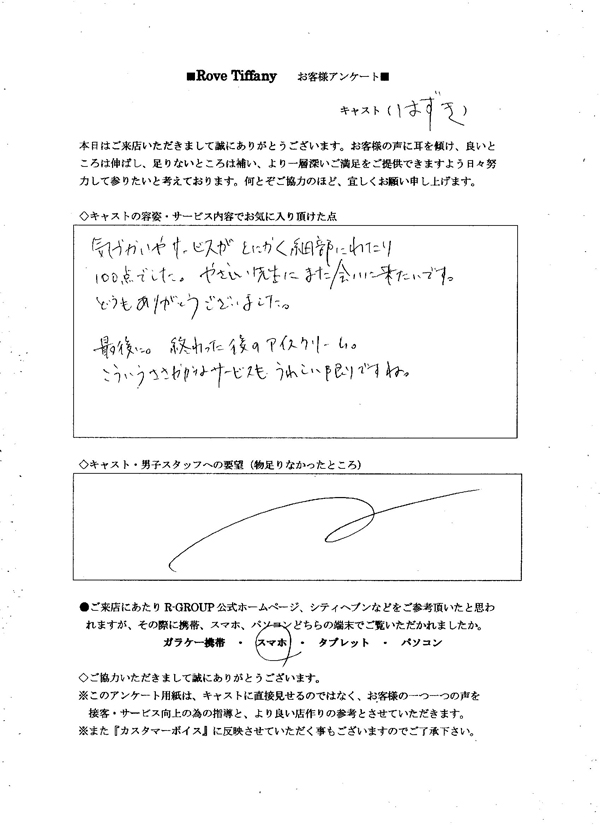 ■Rove Tiffany お客様アンケート■
キャスト(はずき)
本日はご来店いただきまして誠にありがとうございます。お客様の声に耳を傾け、良いと
ころは伸ばし、足りないところは補い、より一層深いご満足をご提供できますよう日々努
力して参りたいと考えております。何とぞご協力のほど、宜しくお願い申し上げます。
◇キャストの容姿・サービス内容でお気に入り頂けた点
気づかいやサービスがとにかく細部にわたり
100点でした。やさしい先生にまた会いに来たいです。
どうもありがとうございました。
最後に。終わった後のアイスクリーム。
こういうささやかなサービスもうれしい限りですね。
◇キャスト・男子スタッフへの要望(物足りなかったところ)
●ご来店にあたりR-GROUP公式ホームページ、シティヘブンなどをご参考頂いたと思わ
れますが、その際に携帯、スマホ、パソコンどちらの端末でご覧いただかれましたか。
ガラケー携帯 ・ スマホ ・ タブレット ・ パソコン
◇ご協力いただきまして誠にありがとうございます。
※このアンケート用紙は、キャストに直接見せるのではなく、お客様の一つ一つの声を
接客・サービス向上の為の指導と、より良い店作りの参考とさせていただきます。
※また『カスタマーボイス』に反映させていただく事もございますのでご了承下さい。